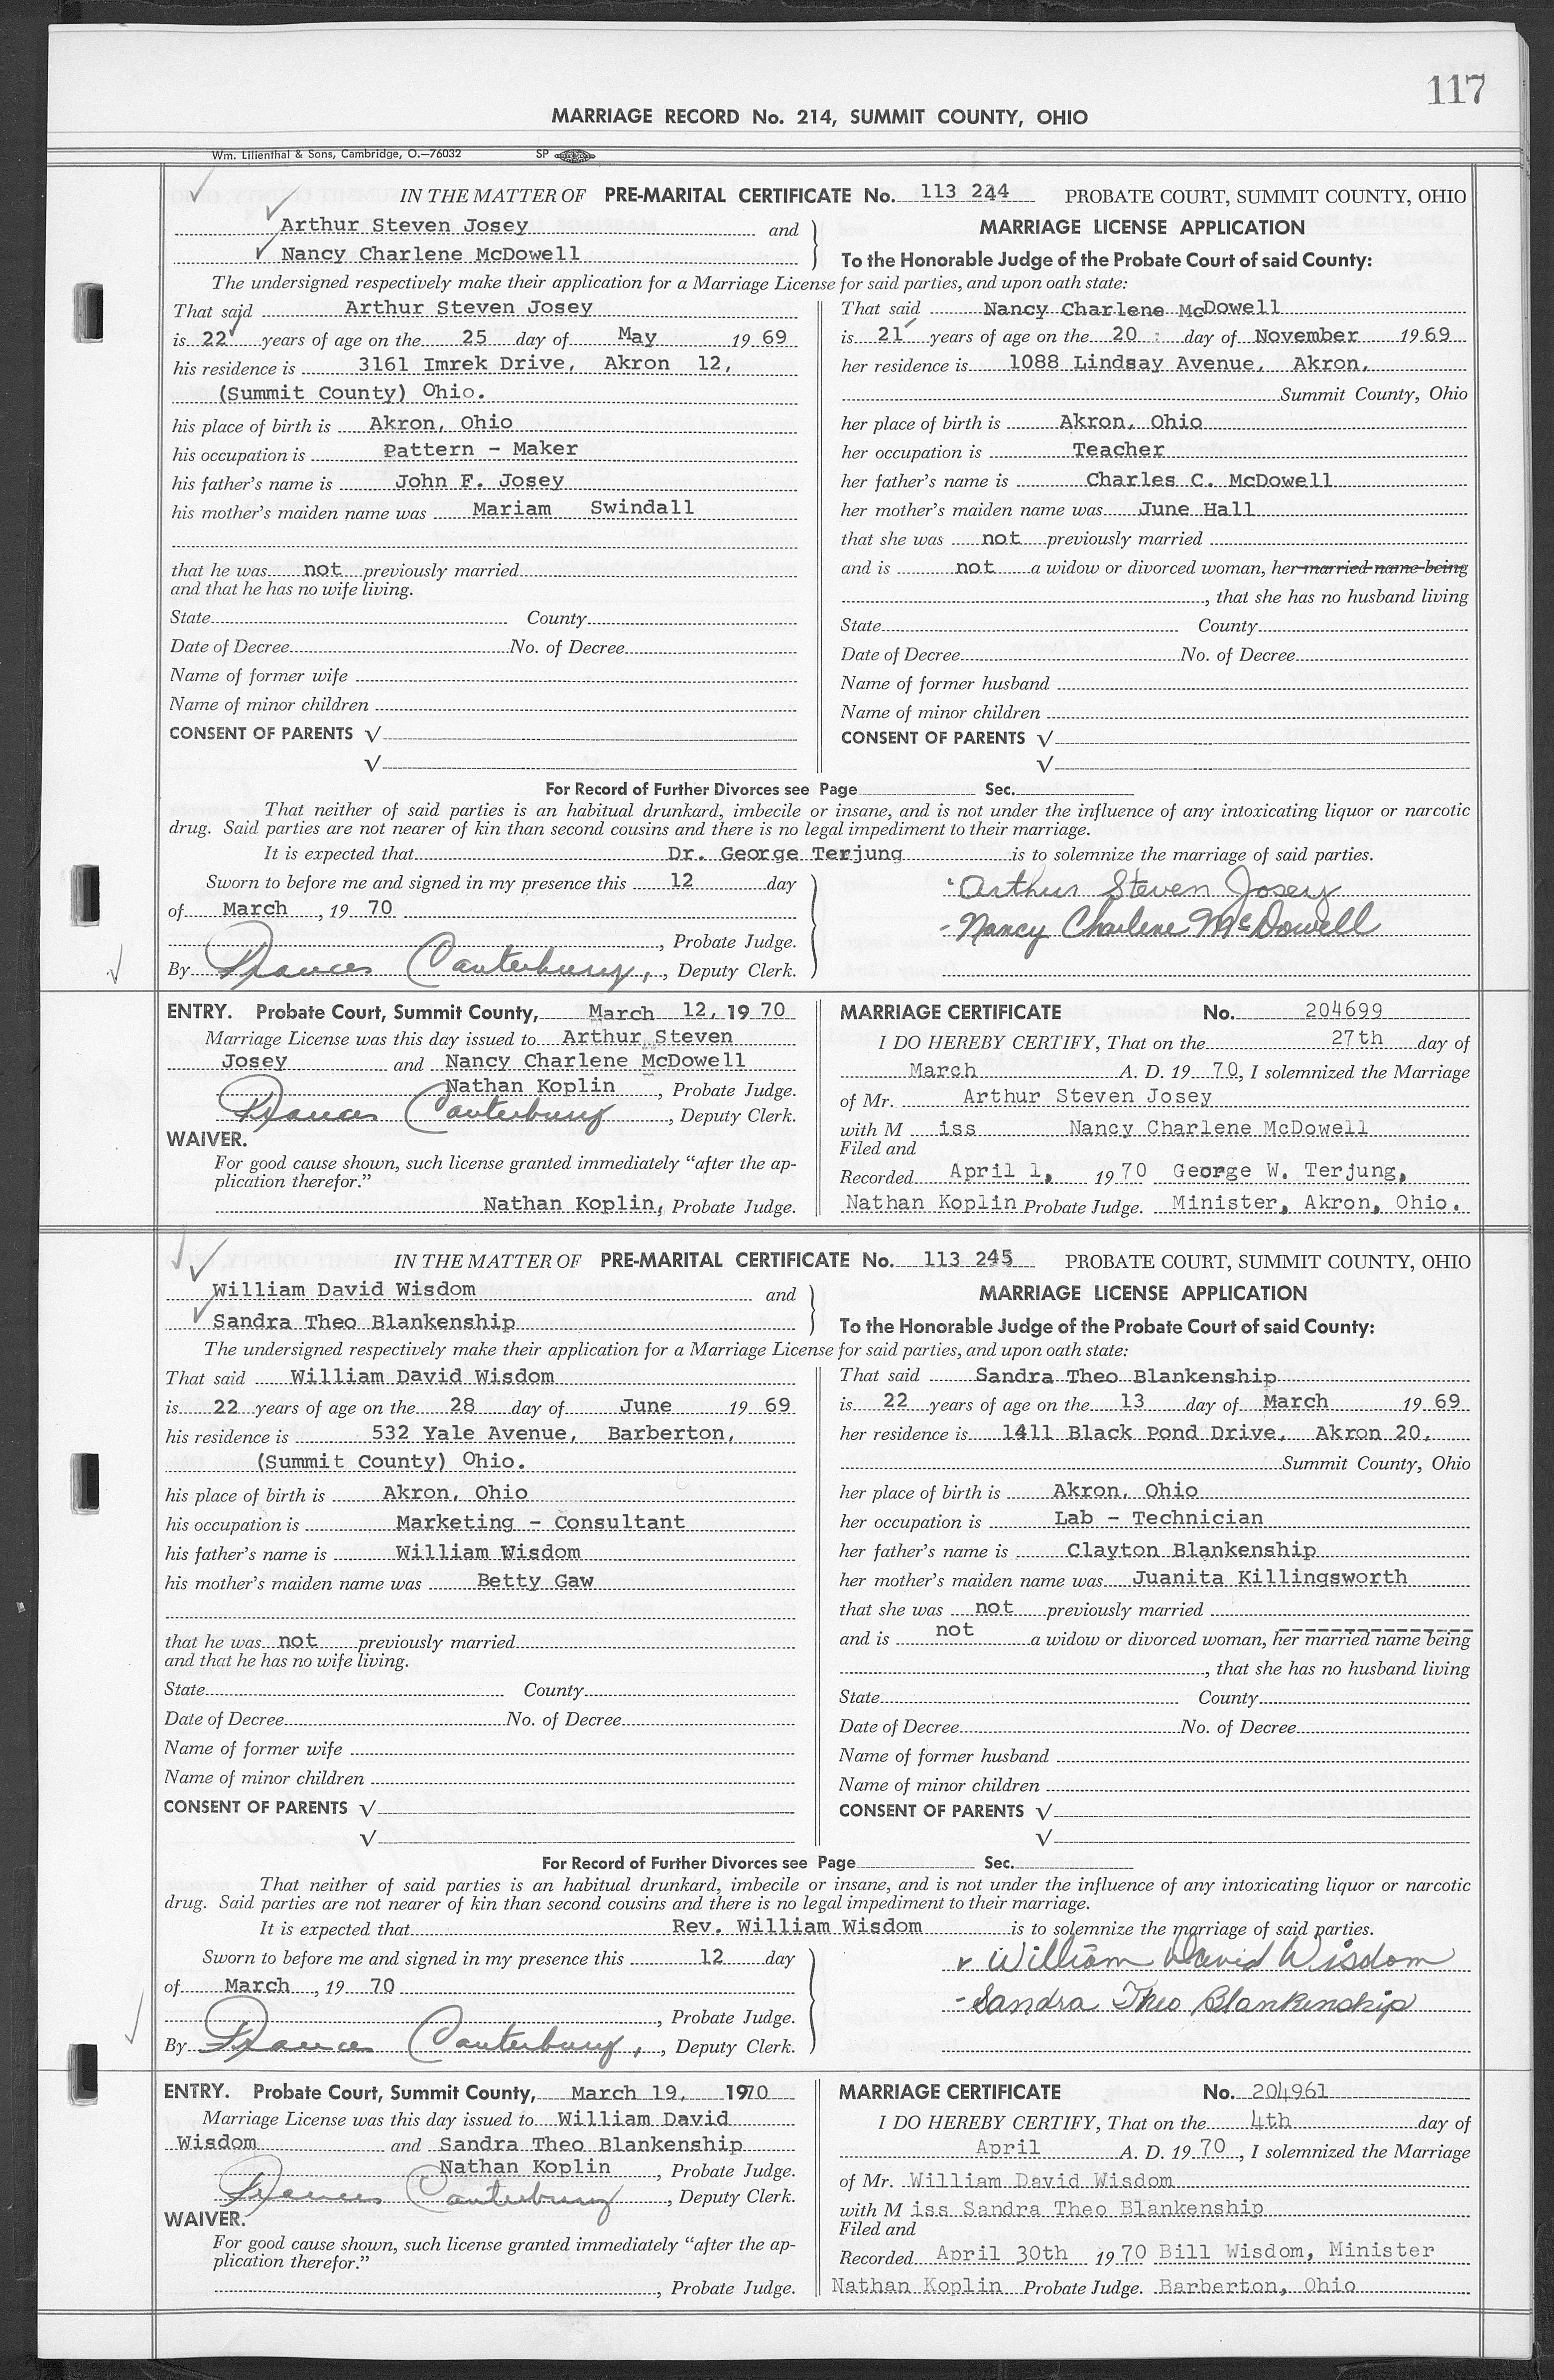 117
MARRIAGE RECORD No. 214, SUMMIT COUNTY, OHIO
Wm. Lilienthal & Sons, Cambridge, O.—76032 SP
IN THE MATTER OF PRE-MARITAL CERTIFICATE No. 113 244 PROBATE COURT, SUMMIT COUNTY, OHIO
Arthur Steven Josey and
Nancy Charlene McDowell
MARRIAGE LICENSE APPLICATION
To the Honorable Judge of the Probate Court of said County:
The undersigned respectively make their application for a Marriage License for said parties, and upon oath state:
That said Arthur Steven Josey
is 22 years of age on the 25 day of May 19 69
his residence is 3161 Imrek Drive, Akron 12,
(Summit County) Ohio.
his place of birth is Akron, Ohio
his occupation is Pattern - Maker
his father's name is John F. Josey
his mother's maiden name was Mariam Swindall
that he was not previously married
and that he has no wife living.
State County
Date of Decree No. of Decree
Name of former wife
Name of minor children
CONSENT OF PARENTS √
√
That said Nancy Charlene McDowell
is 21 years of age on the 20 day of November 19 69
her residence is 1088 Lindsay Avenue, Akron,
Summit County, Ohio
her place of birth is Akron, Ohio
her occupation is Teacher
her father's name is Charles C. McDowell
her mother's maiden name was June Hall
that she was not previously married
and is not a widow or divorced woman, her married name being
, that she has no husband living
State County
Date of Decree No. of Decree
Name of former husband
Name of minor children
CONSENT OF PARENTS √
√
For Record of Further Divorces see Page Sec.
That neither of said parties is an habitual drunkard, imbecile or insane, and is not under the influence of any intoxicating liquor or narcotic
drug. Said parties are not nearer of kin than second cousins and there is no legal impediment to their marriage.
It is expected that Dr. George Terjung is to solemnize the marriage of said parties.
Sworn to before me and signed in my presence this 12 day
of March , 19 70
, Probate Judge.
By Frances Canterbury, , Deputy Clerk.
Arthur Steven Josey
Nancy Charlene McDowell
ENTRY. Probate Court, Summit County, March 12, 19 70
Marriage License was this day issued to Arthur Steven
Josey and Nancy Charlene McDowell
Nathan Koplin , Probate Judge.
Frances Canterbury , Deputy Clerk.
WAIVER.
For good cause shown, such license granted immediately "after the ap-
plication therefor."
Nathan Koplin, Probate Judge.
MARRIAGE CERTIFICATE No. 204699
I DO HEREBY CERTIFY, That on the 27th day of
March A. D. 19 70, I solemnized the Marriage
of Mr. Arthur Steven Josey
with M iss Nancy Charlene McDowell
Filed and
Recorded April 1, 19 70 George W. Terjung,
Nathan Koplin Probate Judge. Minister, Akron, Ohio.
IN THE MATTER OF PRE-MARITAL CERTIFICATE No. 113 245 PROBATE COURT, SUMMIT COUNTY, OHIO
William David Wisdom and
Sandra Theo Blankenship
MARRIAGE LICENSE APPLICATION
To the Honorable Judge of the Probate Court of said County:
The undersigned respectively make their application for a Marriage License for said parties, and upon oath state:
That said William David Wisdom
is 22 years of age on the 28 day of June 19 69
his residence is 532 Yale Avenue, Barberton,
(Summit County) Ohio.
his place of birth is Akron, Ohio
his occupation is Marketing - Consultant
his father's name is William Wisdom
his mother's maiden name was Betty Gaw
that he was not previously married
and that he has no wife living.
State County
Date of Decree No. of Decree
Name of former wife
Name of minor children
CONSENT OF PARENTS √
√
That said Sandra Theo Blankenship
is 22 years of age on the 13 day of March 19 69
her residence is 1411 Black Pond Drive, Akron 20,
Summit County, Ohio
her place of birth is Akron, Ohio
her occupation is Lab - Technician
her father's name is Clayton Blankenship
her mother's maiden name was Juanita Killingsworth
that she was not previously married
and is not a widow or divorced woman, her married name being
, that she has no husband living
State County
Date of Decree No. of Decree
Name of former husband
Name of minor children
CONSENT OF PARENTS √
√
For Record of Further Divorces see Page Sec.
That neither of said parties is an habitual drunkard, imbecile or insane, and is not under the influence of any intoxicating liquor or narcotic
drug. Said parties are not nearer of kin than second cousins and there is no legal impediment to their marriage.
It is expected that Rev. William Wisdom is to solemnize the marriage of said parties.
Sworn to before me and signed in my presence this 12 day
of March , 19 70
, Probate Judge.
By Frances Canterbury, , Deputy Clerk.
William David Wisdom
Sandra Theo Blankenship
ENTRY. Probate Court, Summit County, March 19, 1970
Marriage License was this day issued to William David
Wisdom and Sandra Theo Blankenship
Nathan Koplin , Probate Judge.
Frances Canterbury , Deputy Clerk.
WAIVER.
For good cause shown, such license granted immediately "after the ap-
plication therefor."
, Probate Judge.
MARRIAGE CERTIFICATE No. 204961
I DO HEREBY CERTIFY, That on the 4th day of
April A. D. 19 70 , I solemnized the Marriage
of Mr. William David Wisdom
with M iss Sandra Theo Blankenship
Filed and
Recorded April 30th 19 70 Bill Wisdom, Minister
Nathan Koplin Probate Judge. Barberton, Ohio